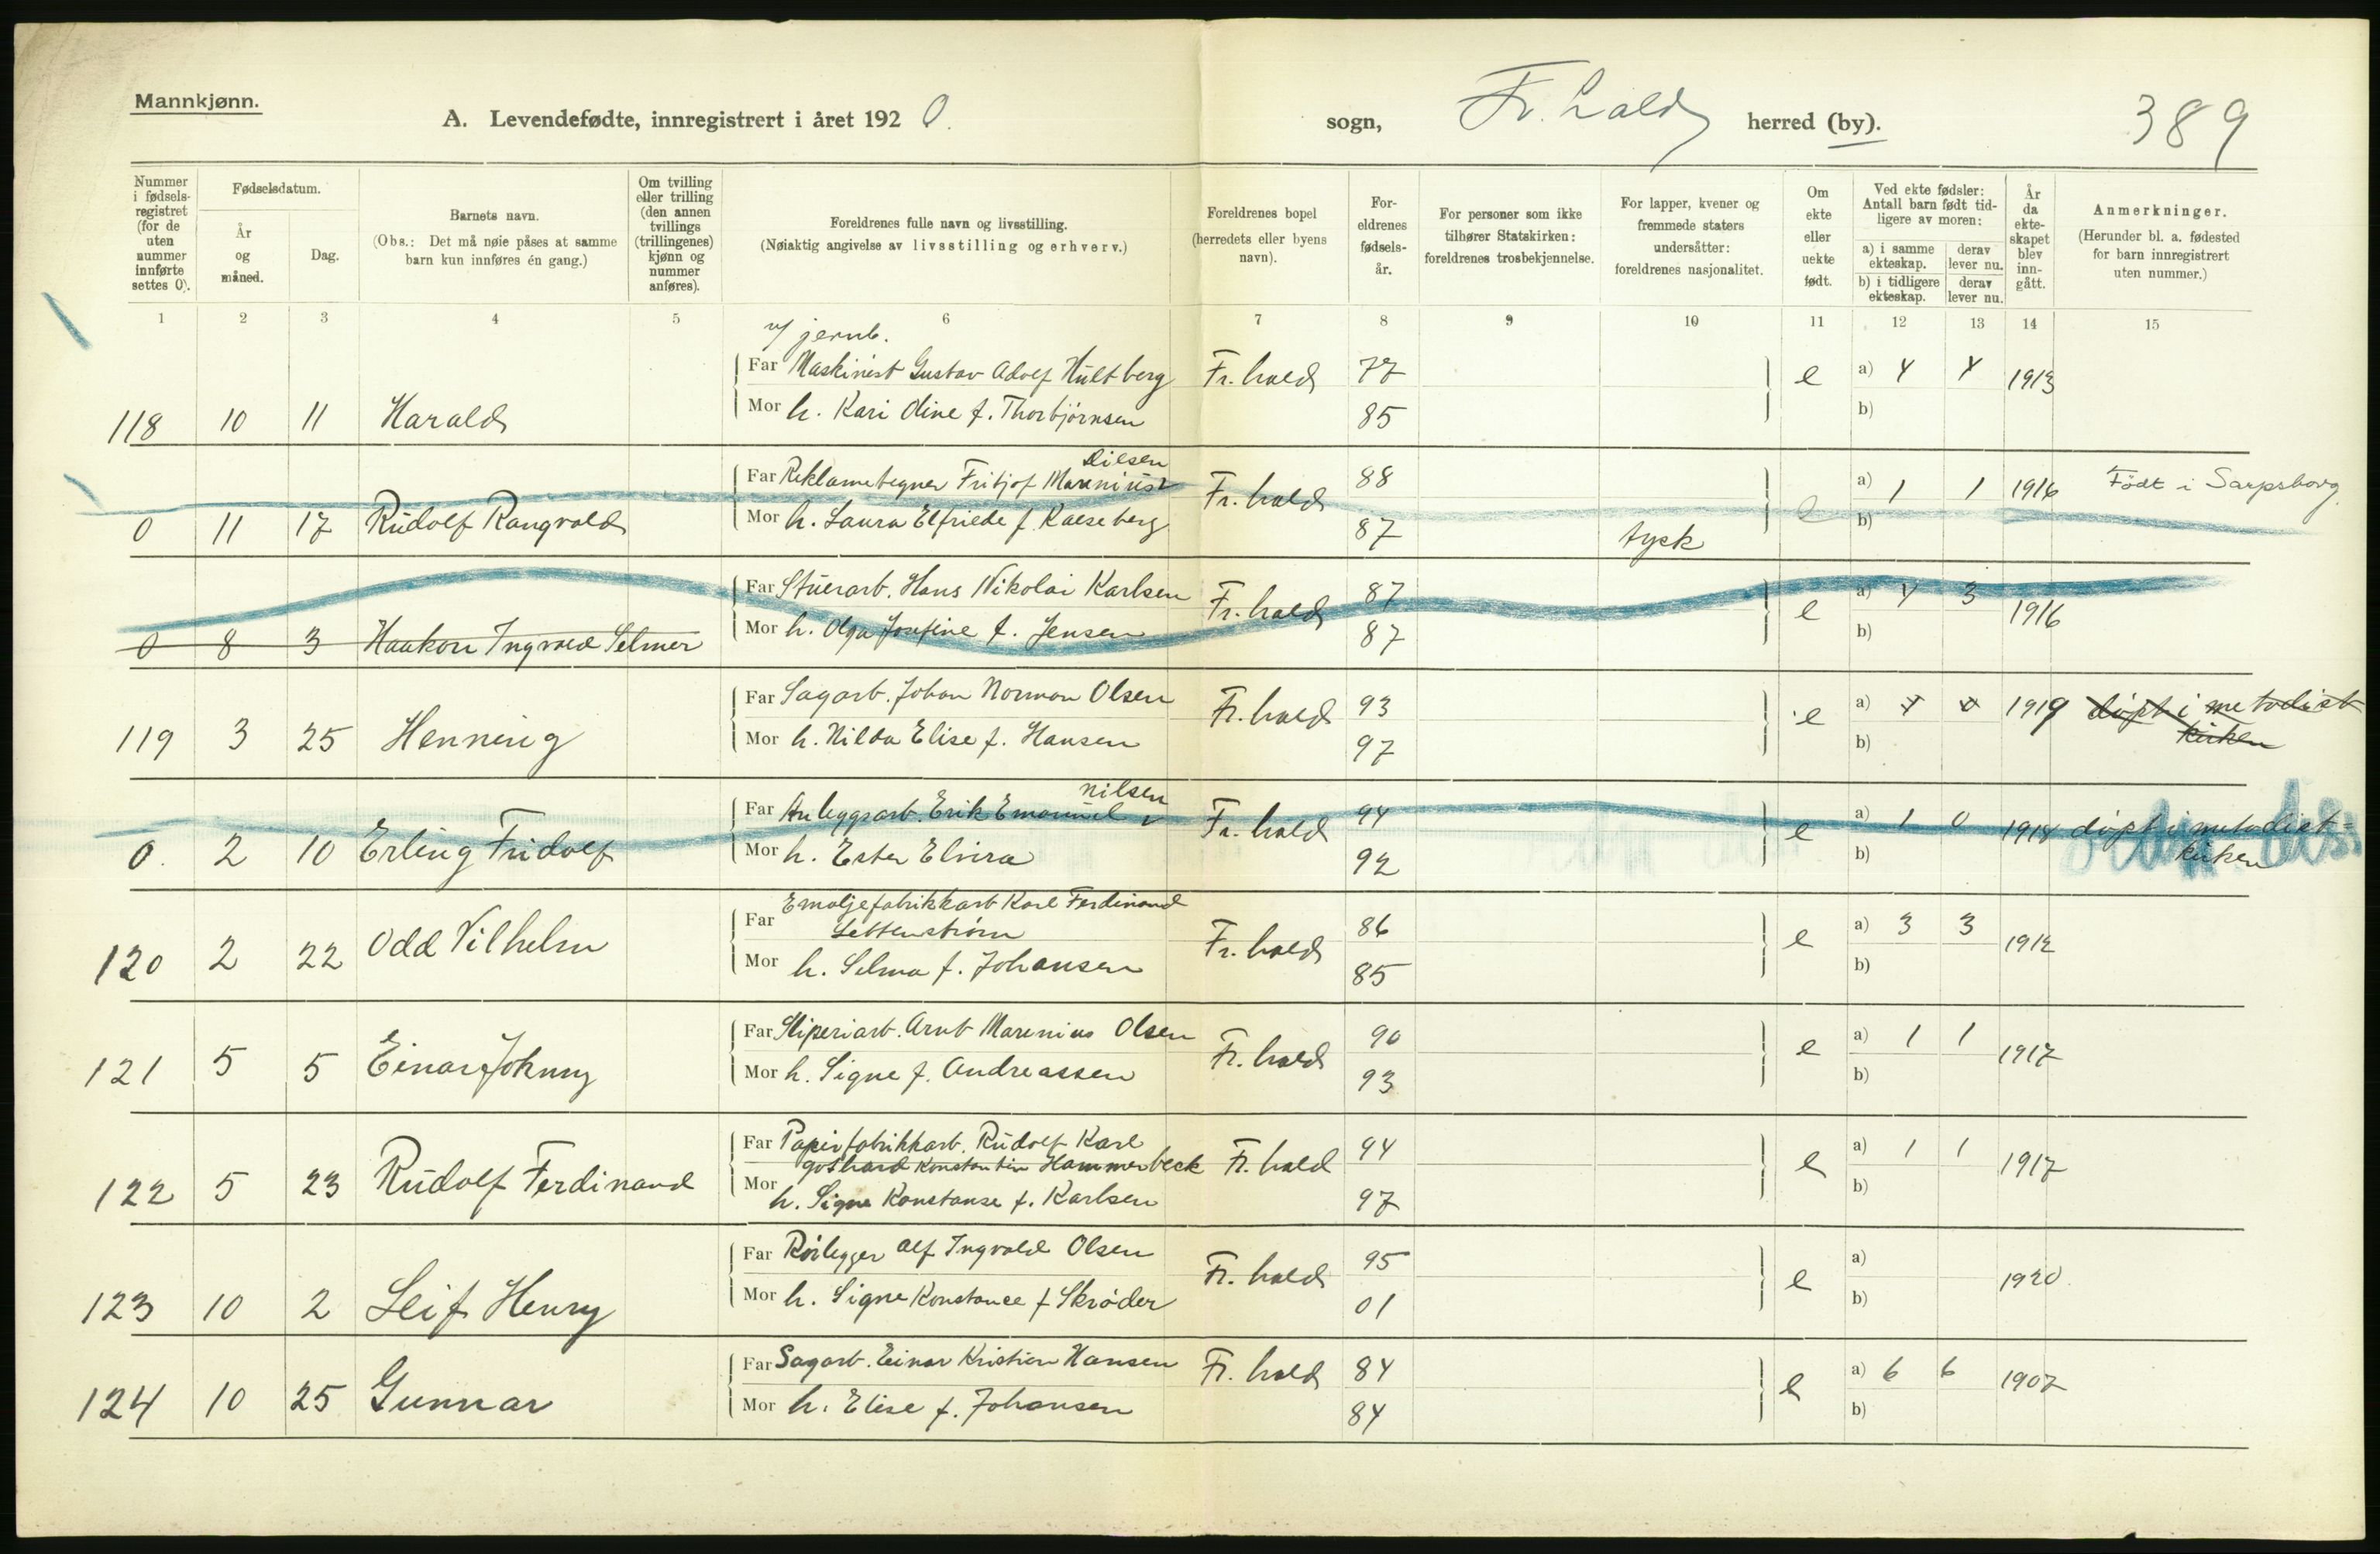 Mannkjønn.
A. Levendefødte, innregistrert i året 192 0.
sogn, Fr. hald herred (by).
389
Nummer i fødselsregistret (for de uten nummer innførte settes 0).
Fødselsdatum.
År og måned.
Dag.
Barnets navn.
(Obs.: Det må nøie påses at samme barn kun innføres én gang.)
Om tvilling eller trilling (den annen tvillings (trillingenes) kjønn og nummer anføres).
Foreldrenes fulle navn og livsstilling.
(Nøiaktig angivelse av livsstilling og erhverv.)
Foreldrenes bopel (herredets eller byens navn).
Foreldrenes fødselsår.
For personer som ikke tilhører Statskirken: foreldrenes trosbekjennelse.
For lapper, kvener og fremmede staters undersåtter: foreldrenes nasjonalitet.
Om ekte eller uekte født.
Ved ekte fødsler: Antall barn født tidligere av moren:
a) i samme ekteskap. derav lever nu.
b) i tidligere ekteskap. derav lever nu.
År da ekteskapet blev inngått.
Anmerkninger.
(Herunder bl. a. fødested for barn innregistrert uten nummer.)
1 2 3 4 5 6 7 8 9 10 11 12 13 14 15
v/ jernb.
Far Maskinist Gustav Adolf Hultberg Fr. hald 77 e a) 4 4 1913
Mor h. Kari Oline f. Thorbjörnsen 85 b)
118 10 11 Harald
Nilsen
Far Reklametegner Fritjof Marenius Fr. hald 88 e a) 1 1 1916 Födt i Sarpsborg.
Mor h. Laura Elfriede f. Kaeseberg 87 tysk b)
0 11 17 Rudolf Rangvald
Far Stuerarb. Hans Nikolai Karlsen Fr. hald 87 e a) 4 3 1916
Mor h. Olga Josefine f. Jensen 87 b)
0 8 3 Haakon Ingvald Selmer
Far Sagarb. Johan Norman Olsen Fr. hald 93 e a) 1919 döpt i metodist
kirken
Mor h. Hilda Elise f. Hansen 97 b)
119 3 25 Henning
Nilsen
Far Anleggsarb. Erik Emanuel Fr. hald 94 e a) 1 0 1918 döpt i metodist-
kirken
Mor h. Ester Elvira 92 b)
0. 2 10 Erling Fridolf
Far Emaljefabrikkarb Karl Ferdinand
Settenström Fr. hald 86 e a) 3 3 1912
Mor h. Selma f. Johansen 85 b)
120 2 22 Odd Vilhelm
Far Sliperiarb. Arnt Marenius Olsen Fr. hald 90 e a) 1 1 1917
Mor h. Signe f. Andreassen 93 b)
121 5 5 Einar Johnny
Far Papirfabrikkarb. Rudolf Karl
Gothard Konstantin Hammerbeck Fr. hald 94 e a) 1 1 1917
Mor h. Signe Konstanse f. Karlsen 97 b)
122 5 23 Rudolf Ferdinand
Far Rörlegger Alf Ingvald Olsen Fr. hald 95 e a) 1920.
Mor h. Signe Konstance f Skröder 01 b)
123 10 2 Leif Henry
Far Sagarb. Einar Kristian Hansen Fr. hald 84 e a) 6 6 1907
Mor h. Elise f. Johansen 84 b)
124 10 25 Gunnar